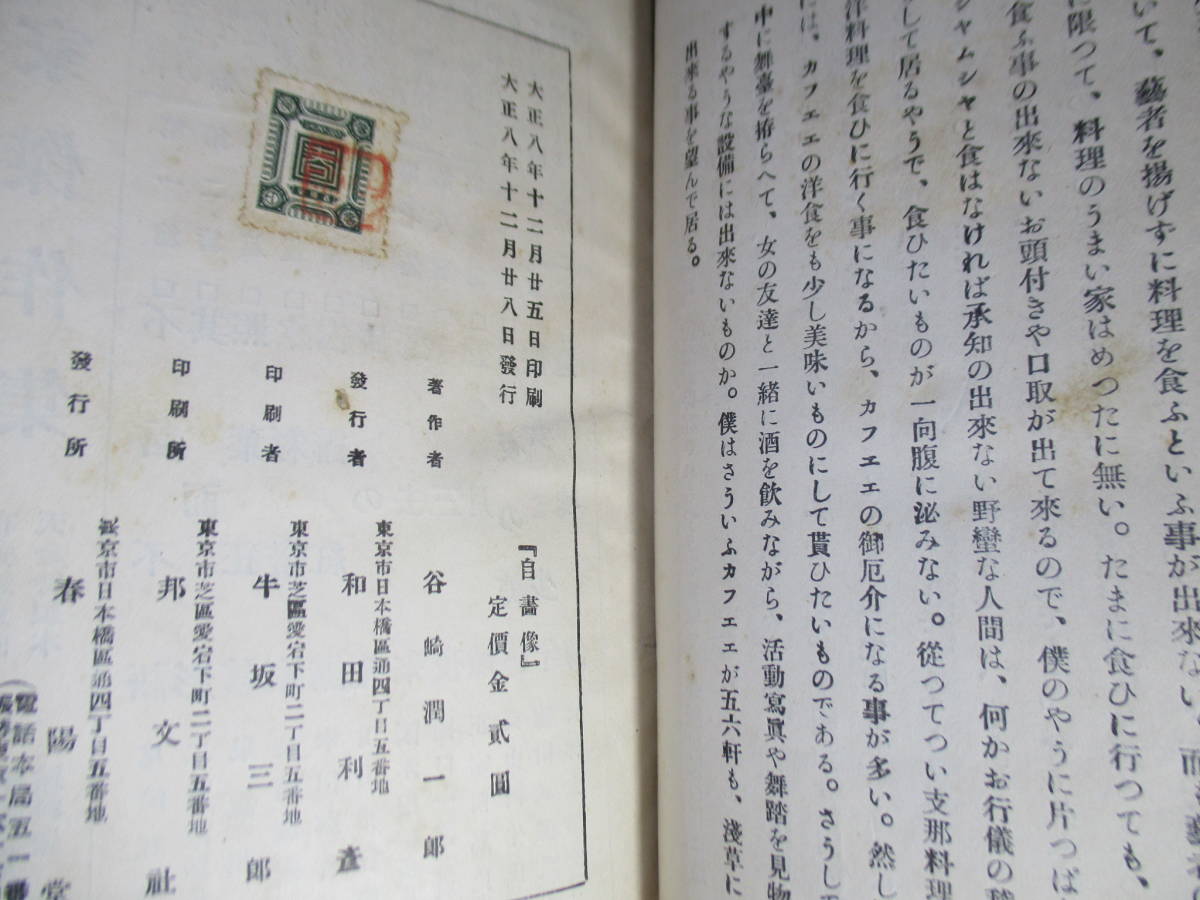 いて、藝者を揚げずに料理を食ふといふ事が出來ない。
に限つて、料理のうまい家はめつたに無い。たまに食ひに行つても、
食ふ事の出來ないお頭付きや口取が出て來るので、僕のやうに片つぱ
シャムシャと食はなければ承知の出來ない野蠻な人間は、何かお行儀の
して居るやうで、食ひたいものが一向腹に泌みない。從つてつい支那料理
洋料理を食ひに行く事になるから、カフエエの御厄介になる事が多い。然し
には、カフエエの洋食をも少し美味いものにして貰ひたいものである。さうし
中に舞臺を拵らへて、女の友達と一緒に酒を飮みながら、活動寫眞や舞踏を見物
するやうな設備には出來ないものか。僕はさういふカフエエが五六軒も、淺草に
出來る事を望んで居る。
大正八年十二月廿五日印刷
大正八年十二月廿八日發行
『自畵像』
定價金貳圓
著作者 谷崎潤一郎
東京市日本橋區通四丁目五番地
發行者 和田利彥
東京市芝區愛宕下町二丁目五番地
印刷者 牛坂三郎
東京市芝區愛宕下町二丁目五番地
印刷所 邦文社
東京市日本橋區通四丁目五番地
發行所 春陽堂
電話本局五一